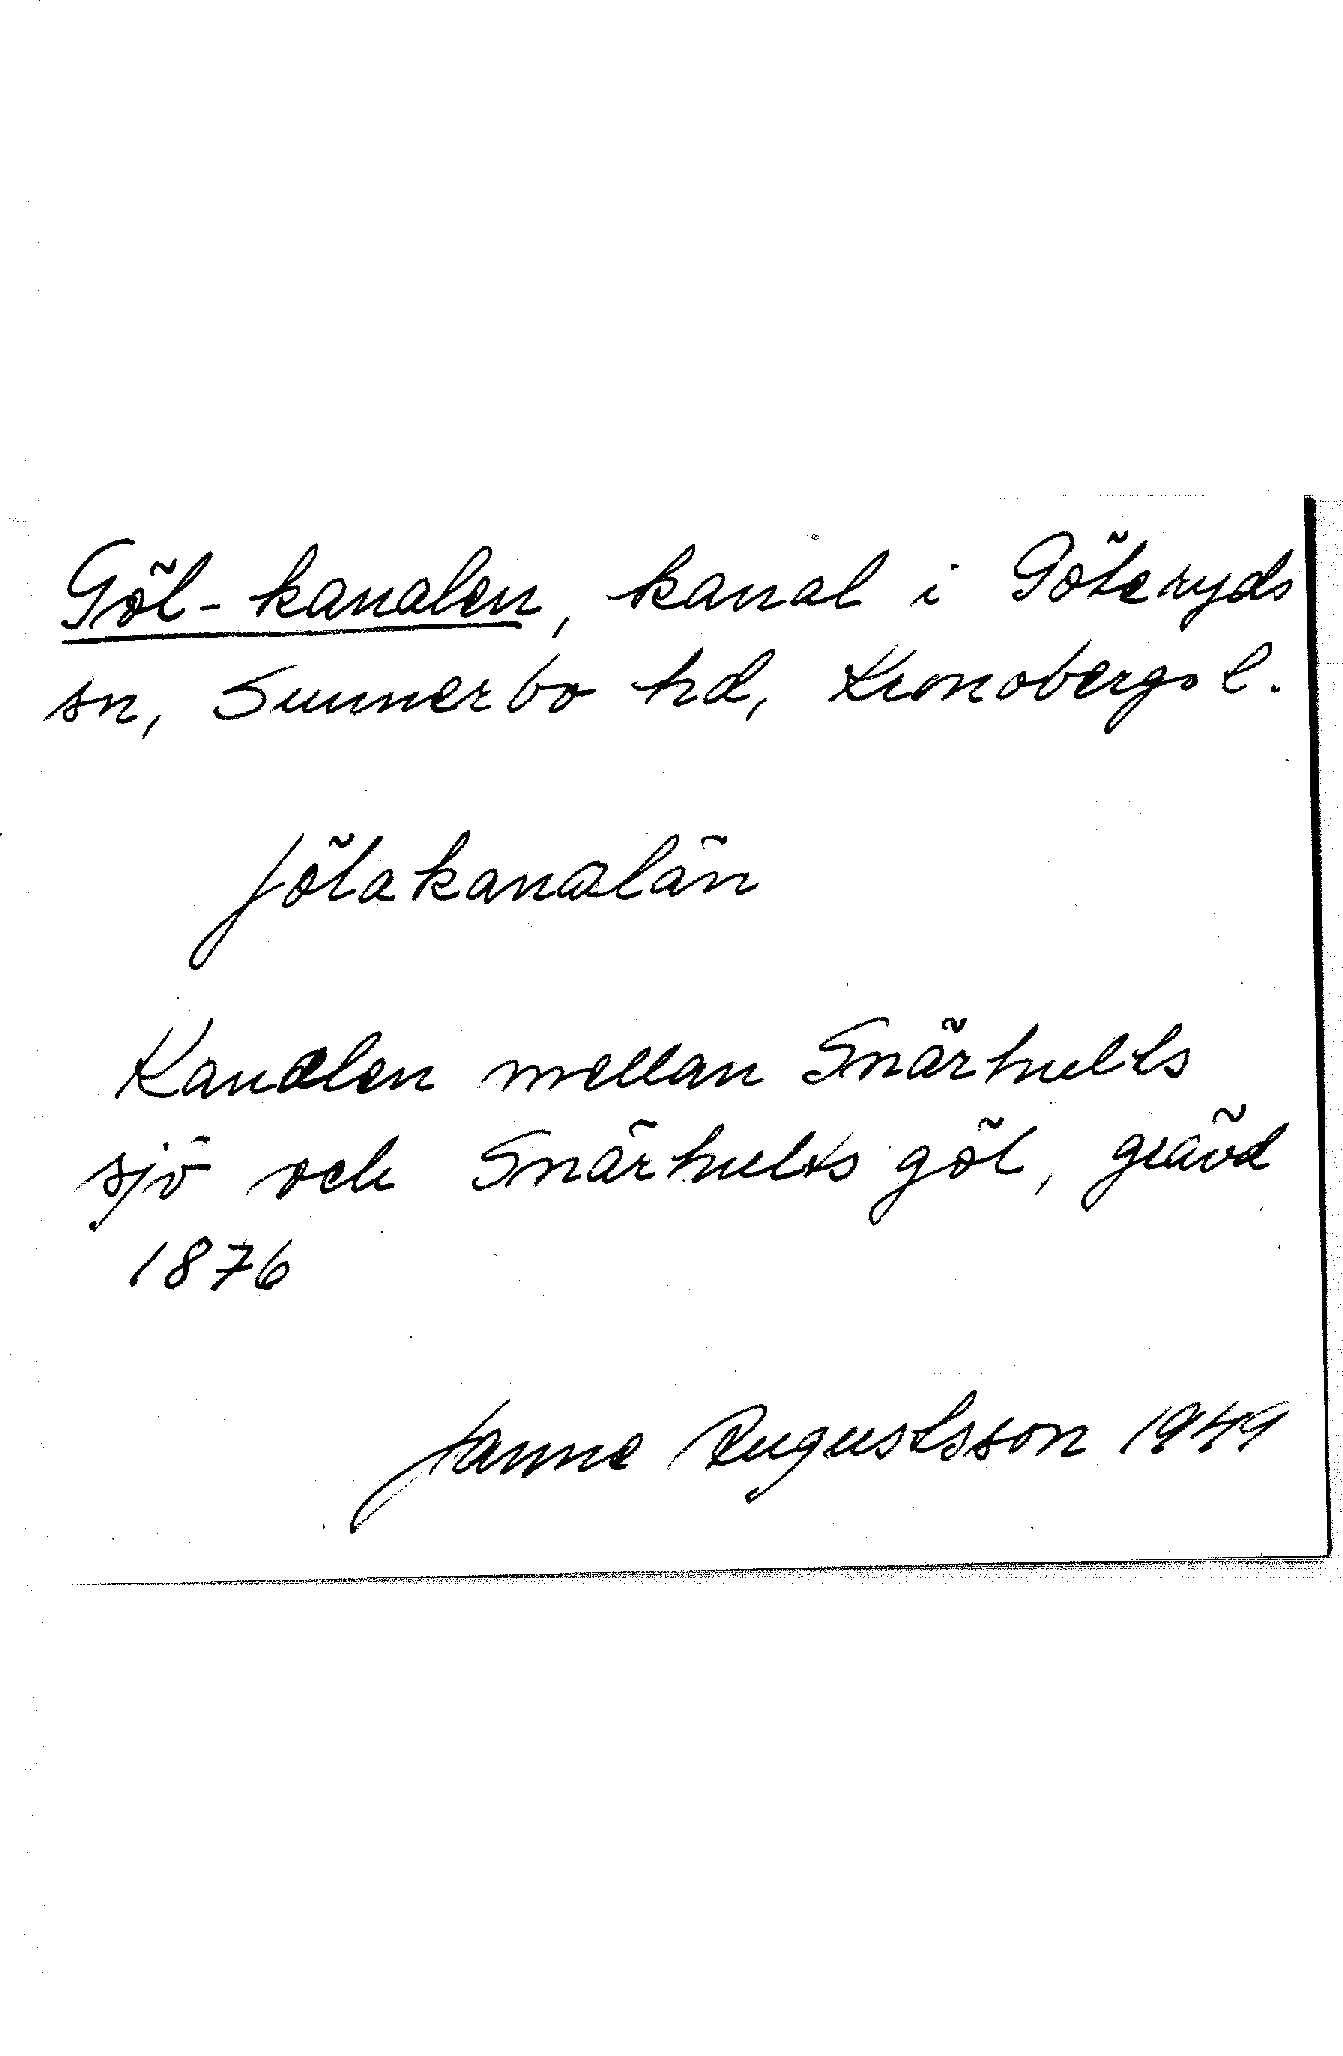 Göl-kanalen, kanal i Göteryds
sn, Sunnerbo hd, Kronobergs l.
jölakanalän
Kanalen mellan Snärhults
sjö och Snärhults göl, grävd
1876
Janne Augustsson 1949